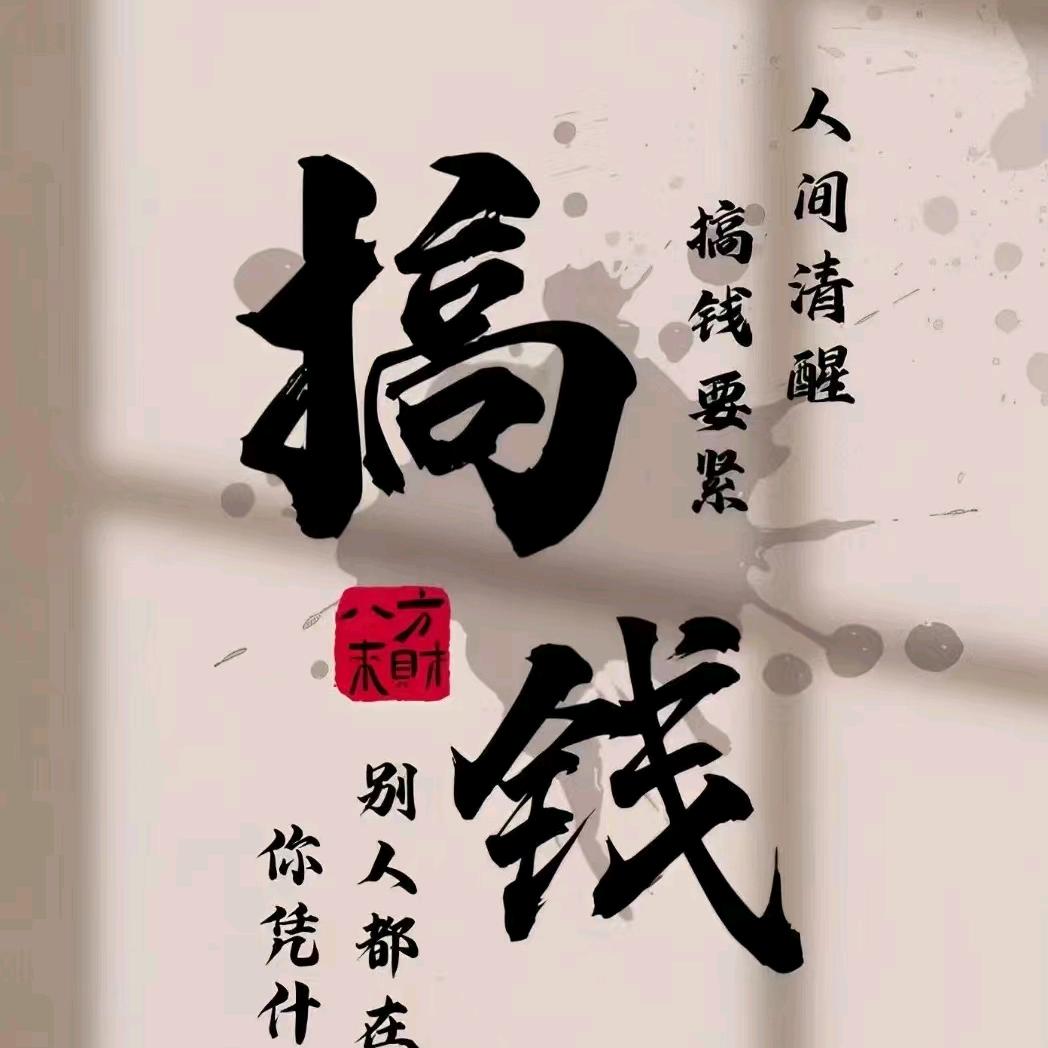 人间清醒
搞钱要紧
搞
钱
八方
来財
别人都在
你凭什